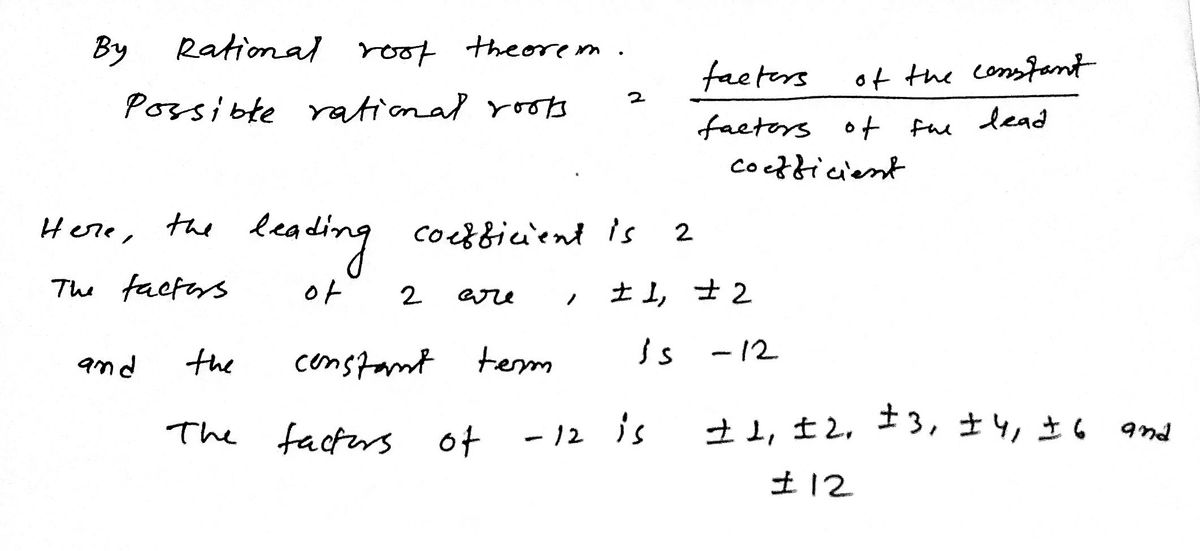 By Rational root theorem.
Possible rational roots = factors of the constant
factors of the lead
coefficient
Here, the leading coefficient is 2
The factors of 2 are , ±1, ±2
and the constant term is -12
The factors of -12 is ±1, ±2, ±3, ±4, ±6 and
±12